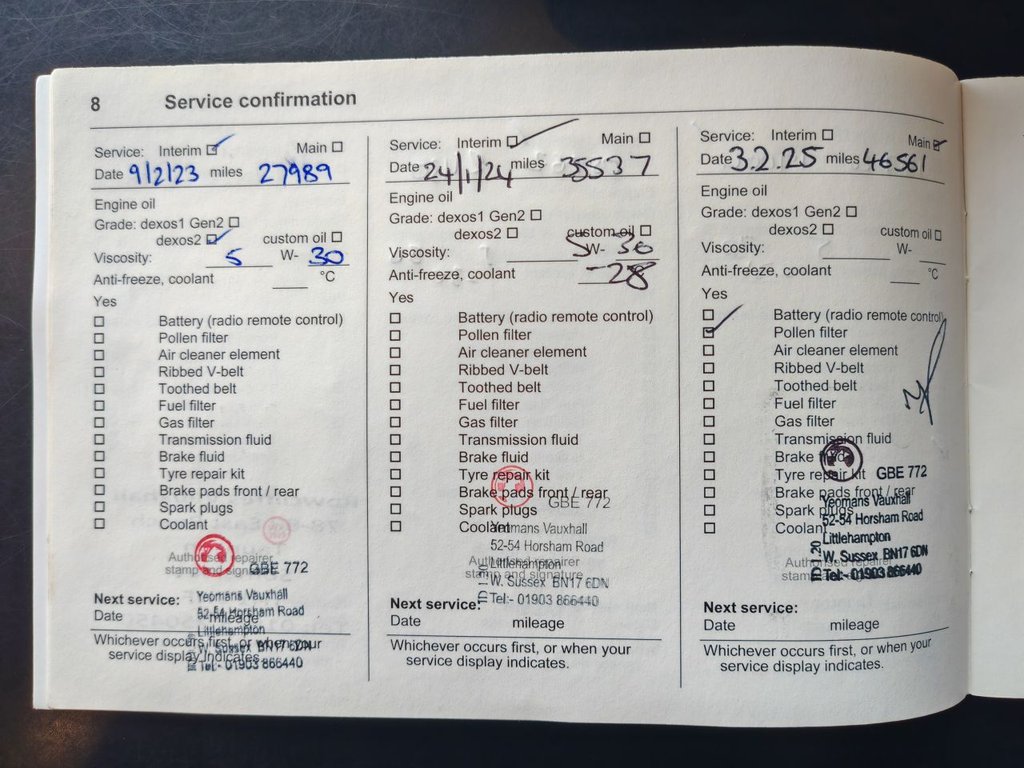 8 Service confirmation
Service: Interim Main
Date 9/2/23 miles 27989
Engine oil
Grade: dexos1 Gen2
dexos2 custom oil
Viscosity: 5 W- 30
Anti-freeze, coolant °C
Yes
Battery (radio remote control)
Pollen filter
Air cleaner element
Ribbed V-belt
Toothed belt
Fuel filter
Gas filter
Transmission fluid
Brake fluid
Tyre repair kit
Brake pads front / rear
Spark plugs
Coolant
Authorised repairer
stamp and signature
GBE 772
Yeomans Vauxhall
52-54 Horsham Road
Littlehampton
W. Sussex BN17 6DN
Tel:- 01903 866440
Next service:
Date mileage
Whichever occurs first, or when your
service display indicates.
Service: Interim Main
Date 24/1/24 miles 35537
Engine oil
Grade: dexos1 Gen2
dexos2 custom oil
Viscosity: 5 W- 30
Anti-freeze, coolant -28
Yes
Battery (radio remote control)
Pollen filter
Air cleaner element
Ribbed V-belt
Toothed belt
Fuel filter
Gas filter
Transmission fluid
Brake fluid
Tyre repair kit
Brake pads front / rear
Spark plugs
Coolant
Authorised repairer
stamp and signature
GBE 772
Yeomans Vauxhall
52-54 Horsham Road
Littlehampton
W. Sussex BN17 6DN
Tel:- 01903 866440
ID 11.20
Next service:
Date mileage
Whichever occurs first, or when your
service display indicates.
Service: Interim Main
Date 3.2.25 miles 46561
Engine oil
Grade: dexos1 Gen2
dexos2 custom oil
Viscosity: W-
Anti-freeze, coolant °C
Yes
Battery (radio remote control)
Pollen filter
Air cleaner element
Ribbed V-belt
Toothed belt
Fuel filter
Gas filter
Transmission fluid
Brake fluid
Tyre repair kit
Brake pads front / rear
Spark plugs
Coolant
Authorised repairer
stamp and signature
GBE 772
Yeomans Vauxhall
52-54 Horsham Road
Littlehampton
W. Sussex BN17 6DN
Tel:- 01903 866440
ID 11.20
Next service:
Date mileage
Whichever occurs first, or when your
service display indicates.